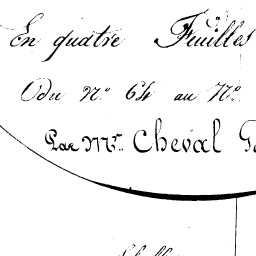 En quatre Feuilles
du N.º 64 au N.º
Par Mr. Cheval